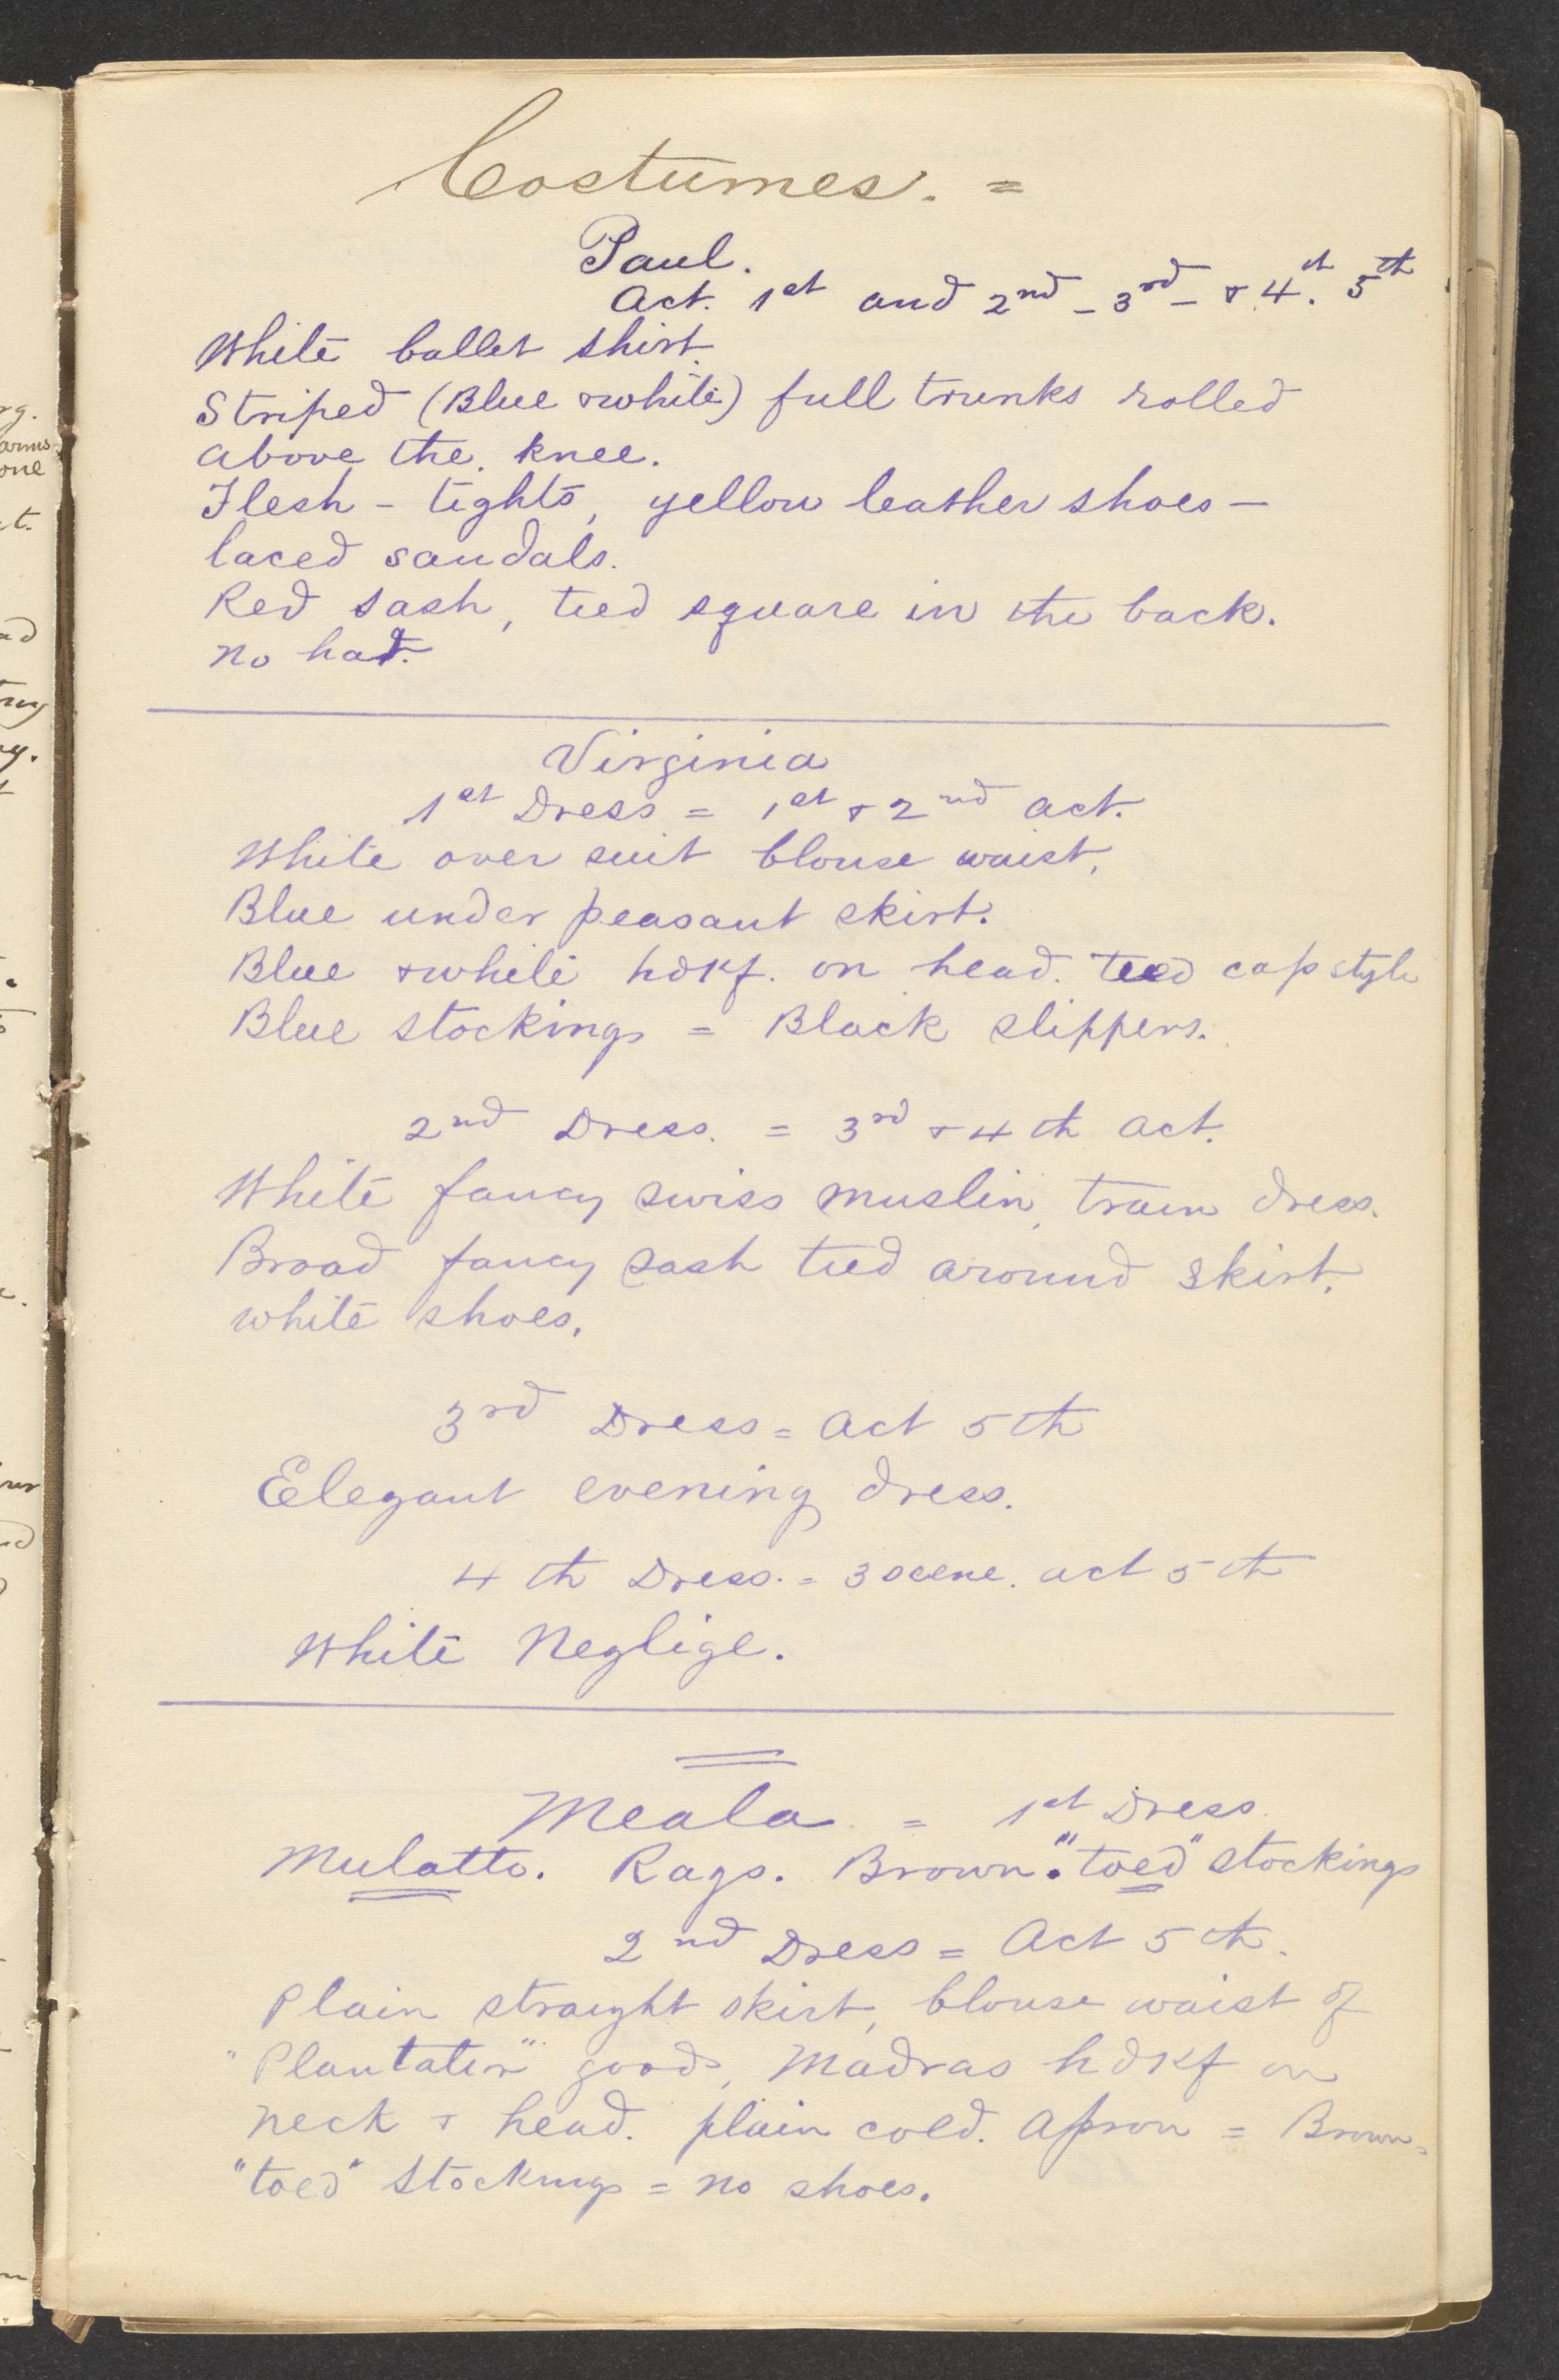 Costumes. =
Paul.
Act. 1st and 2nd - 3rd - & 4th. 5th
White ballet shirt.
Striped (Blue & white) full trunks rolled
above the knee.
Flesh - tights, yellow leather shoes -
laced sandals.
Red sash, tied square in the back.
No hat.
Virginia
1st Dress = 1st & 2nd act.
White over suit blouse waist,
Blue under peasant skirt.
Blue & white hdkf. on head. tied cap style
Blue stockings = Black slippers.
2nd Dress. = 3rd & 4th act.
White fancy swiss muslin, train dress.
Broad fancy sash tied around skirt.
white shoes.
3rd Dress = Act 5th
Elegant evening dress.
4th Dress. = 3 scene. act 5th
White Neglige.
Meala = 1st Dress
Mulatto. Rags. Brown. "toed" stockings
2nd Dress = Act 5th.
Plain straight skirt, blouse waist of
"Plantation" goods, Madras hdkf on
neck & head. plain cold. Apron = Brown =
"toed" stockings = no shoes.